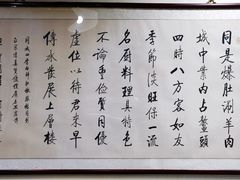 同是爆肚涮羊肉
城中業内占鳌頭
四時八方客如友
季節淡旺保一流
名厨料理具特色
不論季位質同優
虚位以待君来早
傅水發展上層楼